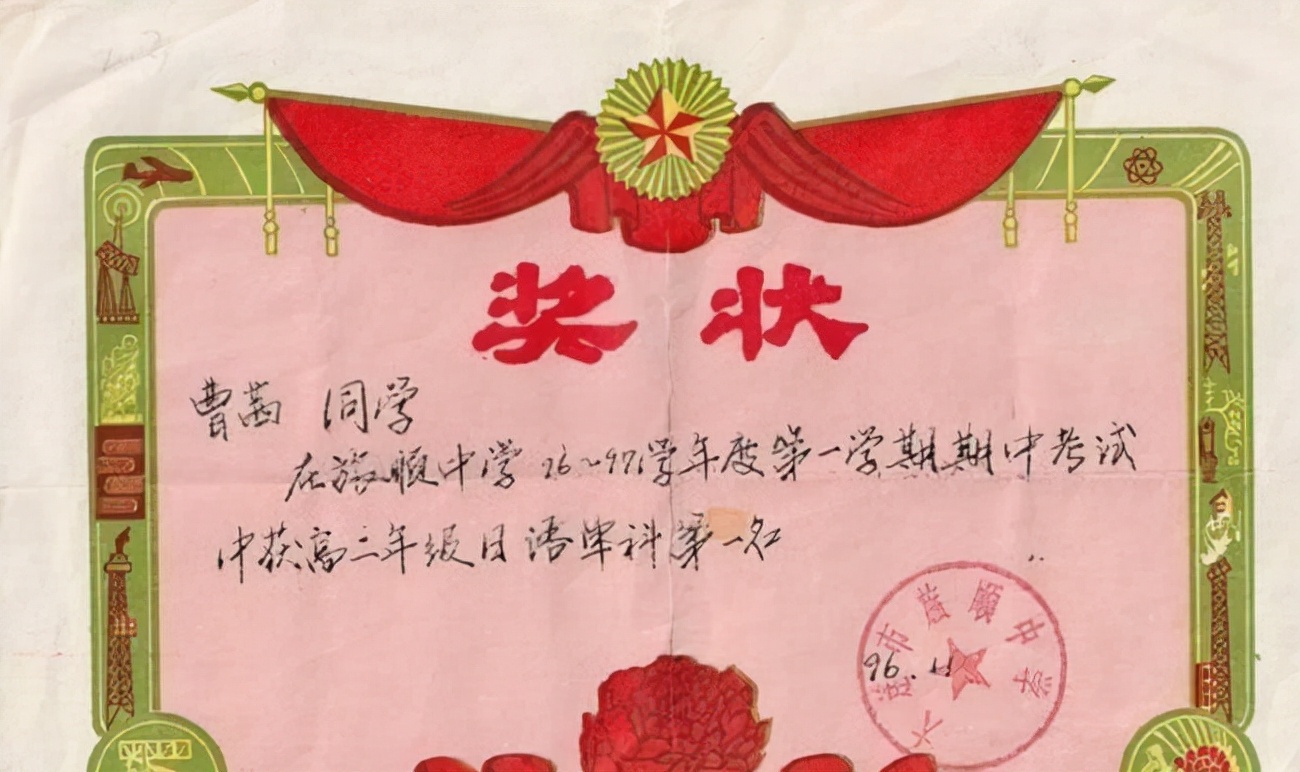 奖状
曹茜 同学
在旅顺中学96~97学年度第一学期期中考试
中获高三年级日语单科第一名
大连市旅顺中学
96.11